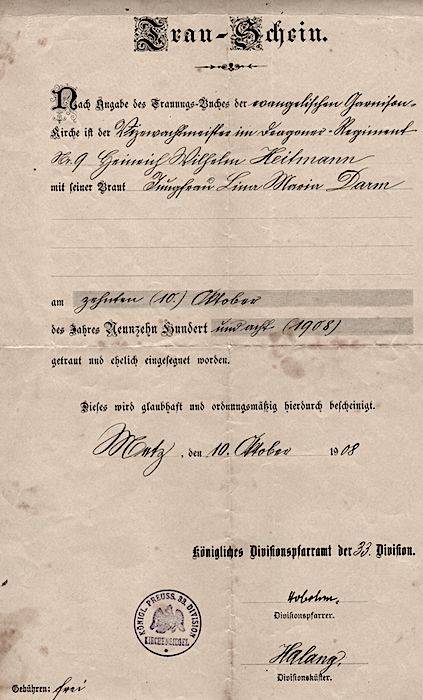 Trau-Schein.
Nach Angabe des Trauungs-Buches der evangelischen Garnison-
Kirche ist der Vizewachtmeister im Dragoner-Regiment
Nr. 9 Heinrich Wilhelm Heitmann
mit seiner Braut Jungfrau Lina Maria Darm
am zehnten (10.) Oktober
des Jahres Neunzehn Hundert und acht (1908)
getraut und ehelich eingesegnet worden.
Dieses wird glaubhaft und ordnungsmäßig hierdurch bescheinigt.
Metz, den 10. Oktober 1908
Königliches Divisionspfarramt der 33. Division.
Divisionspfarrer.
KÖNIGL. PREUSS. 33. DIVISION
KIRCHENSIEGEL
Halang.
Divisionsküster.
Gebühren: frei